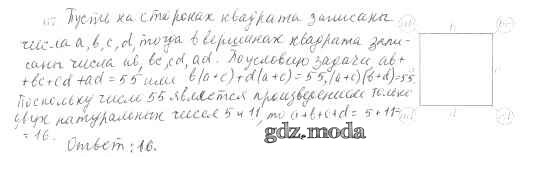 Пусть на сторонах квадрата записаны
числа a, b, c, d, тогда в вершинах квадрата запи-
саны числа ab, bc, cd, ad. По условию задачи ab+
+bc+cd+ad=55 или b(a+c)+d(a+c)=55, (a+c)(b+d)=55.
Поскольку число 55 является произведением только
двух натуральных чисел 5 и 11, то a+b+c+d=5+11=
=16.
gdz.moda
Ответ: 16.